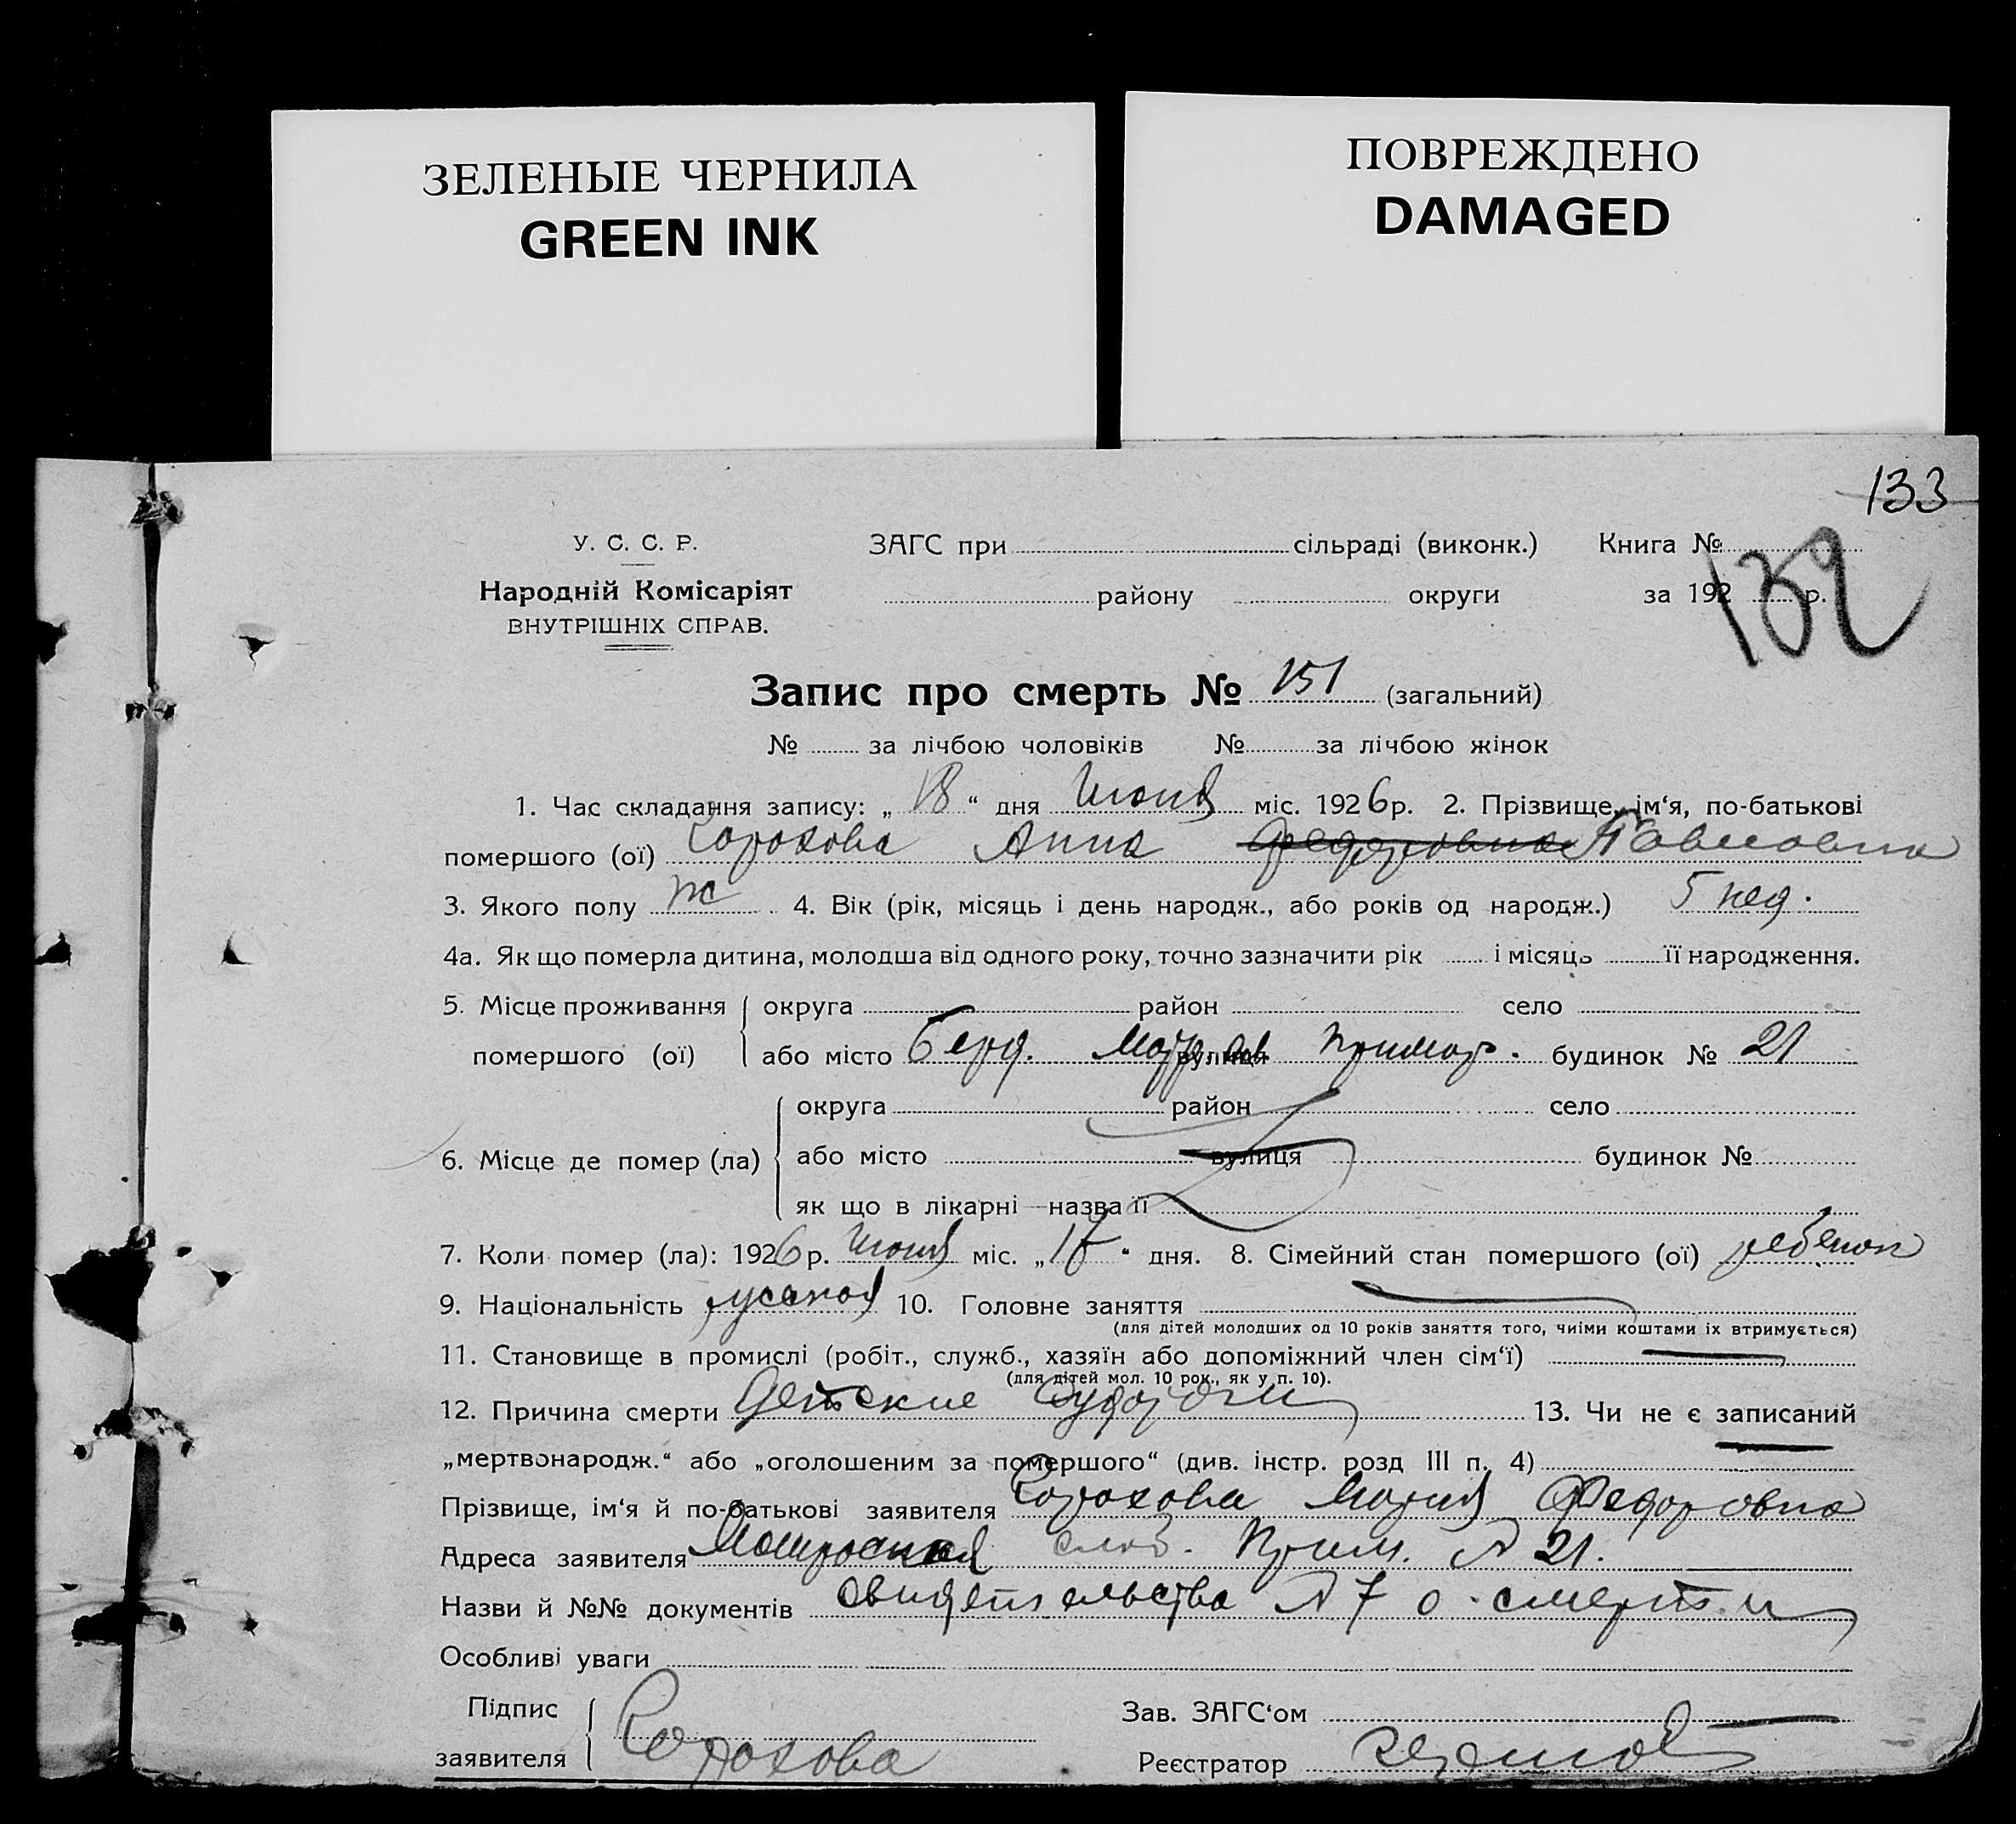 ЗЕЛЕНЫЕ ЧЕРНИЛА
GREEN INK
ПОВРЕЖДЕНО
DAMAGED
133
У. С. С. Р.
ЗАГС при сільраді (виконк.) Книга №
132
Народній Комісаріят
району округи за 192 р.
ВНУТРІШНІХ СПРАВ.
Запис про смерть № 151 (загальний)
№ за лічбою чоловіків № за лічбою жінок
1. Час складання запису: „ 18 “ дня Июня міс. 1926 р. 2. Прізвище, ім‘я, по-батькові
помершого (ої) Горохова Анна Федоровна Павловна
3. Якого полу ж 4. Вік (рік, місяць і день народж., або років од народж.) 5 нед.
4а. Як що померла дитина, молодша від одного року, точно зазначити рік і місяць її народження.
5. Місце проживання округа район село
помершого (ої) або місто Берд. вулиця Примор. будинок № 21
округа район село
6. Місце де помер (ла) або місто вулиця будинок №
як що в лікарні—назва її
7. Коли помер (ла): 1926 р. Июня міс. „ 17 “ дня. 8. Сімейний стан помершого (ої) ребенок
9. Національність русская 10. Головне заняття
(для дітей молодших од 10 років заняття того, чиїми коштами їх втримується)
11. Становище в промислі (робіт., служб., хазяїн або допоміжний член сім‘ї)
(для дітей мол. 10 рок., як у п. 10).
12. Причина смерти Детские судороги 13. Чи не є записаний
„мертвонародж.“ або „оголошеним за помершого“ (див. інстр. розд III п. 4)
Прізвище, ім‘я й по-батькові заявителя Горохова Мария Федоровна
Адреса заявителя Матросская слоб. Прим. № 21.
Назви й №№ документів свидетельства № 7 о смерти
Особливі уваги
Підпис
заявителя Горохова
Зав. ЗАГС‘ом
Реєстратор